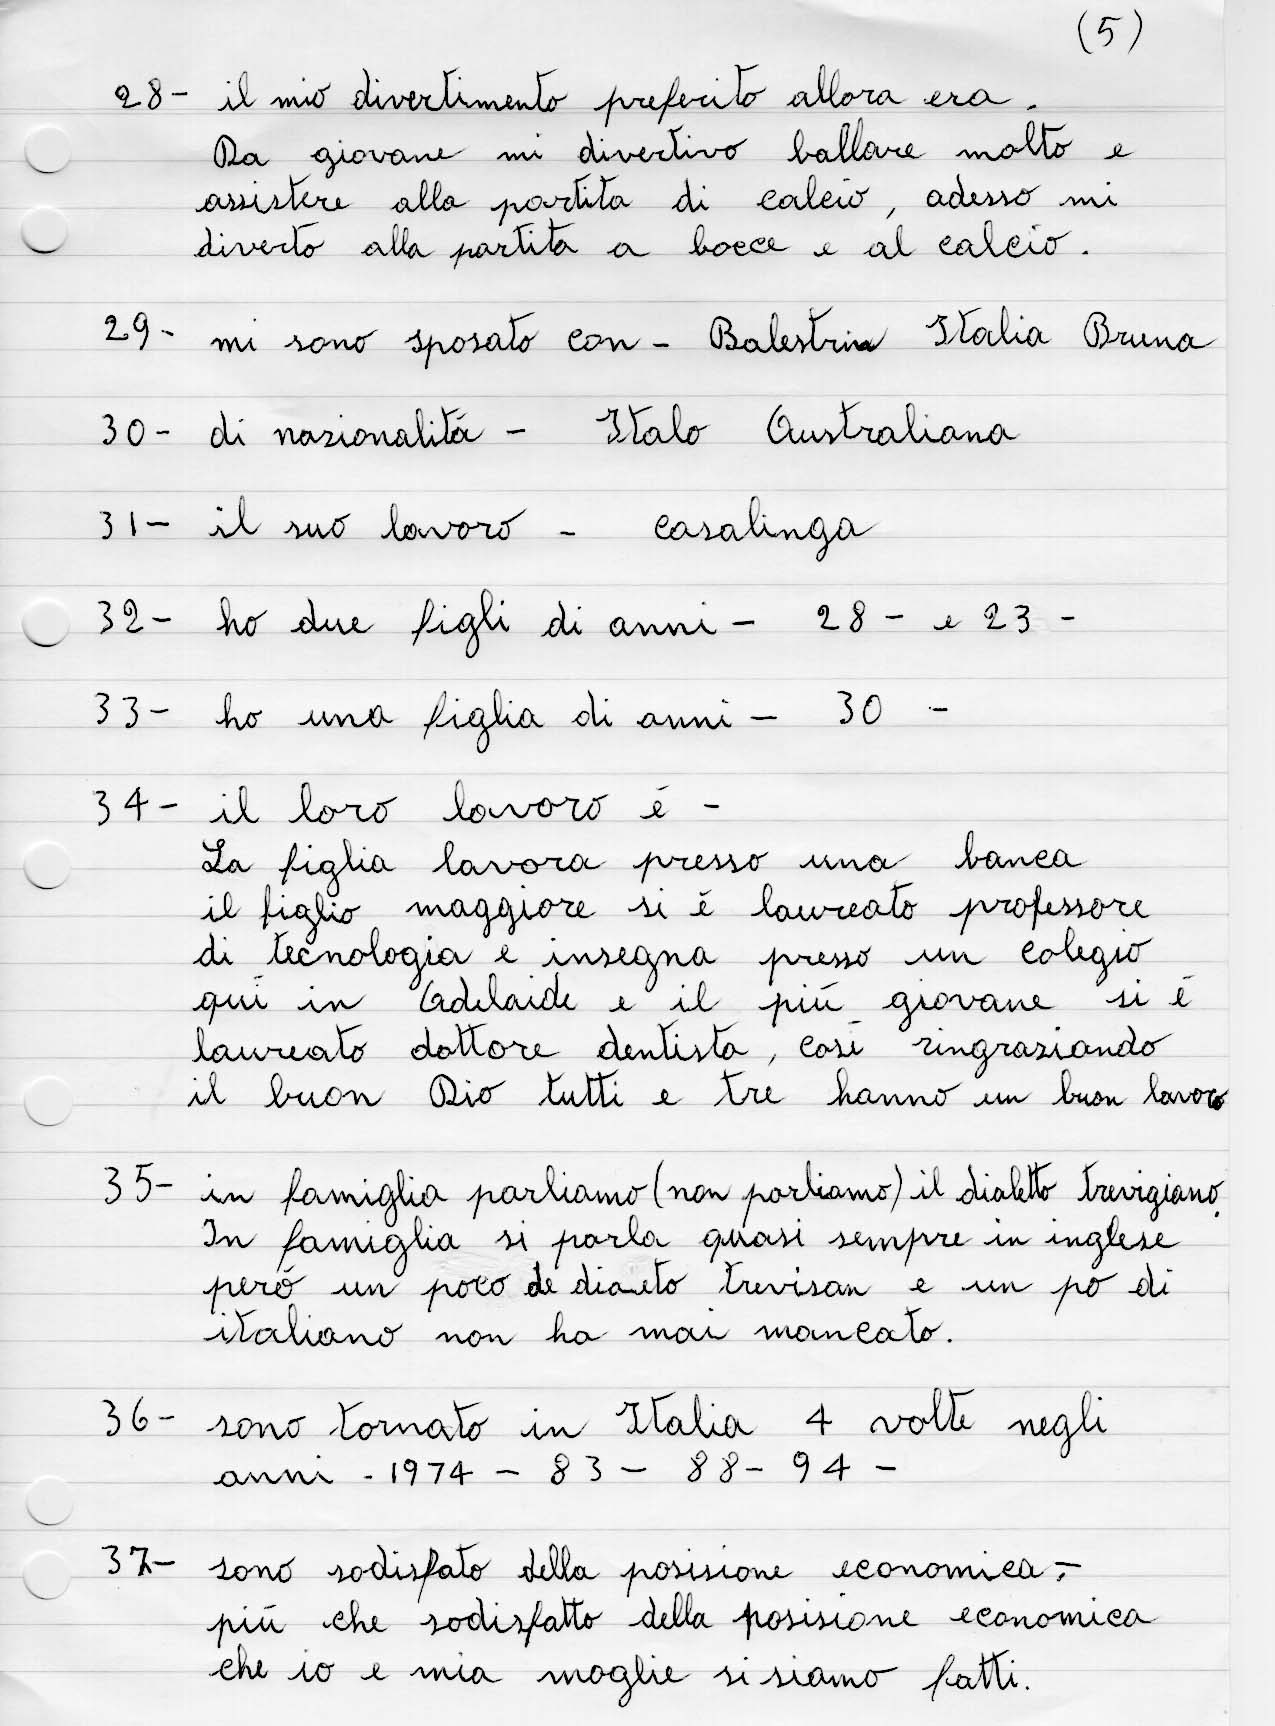 (5)
28- il mio divertimento preferito allora era.
Da giovane mi divertivo ballare molto e
assistere alla partita di calcio, adesso mi
diverto alla partita a bocce e al calcio.
29- mi sono sposato con - Balestrin Italia Bruna
30- di nazionalità - Italo Australiana
31- il suo lavoro - casalinga
32- ho due figli di anni - 28 - e 23 -
33- ho una figlia di anni - 30 -
34- il loro lavoro è -
La figlia lavora presso una banca
il figlio maggiore si è laureato professore
di tecnologia e insegna presso un colegio
qui in Adelaide e il più giovane si è
laureato dottore dentista, così ringraziando
il buon Dio tutti e tre hanno un buon lavoro
35- in famiglia parliamo (non parliamo) il dialetto trevigiano.
In famiglia si parla quasi sempre in inglese
però un poco de dialeto trevisan e un po di
italiano non ha mai mancato.
36- sono tornato in Italia 4 volte negli
anni - 1974 - 83 - 88 - 94 -
37- sono sodisfato della posisione economica;-
più che sodisfatto della posisione economica
che io e mia moglie si siamo fatti.